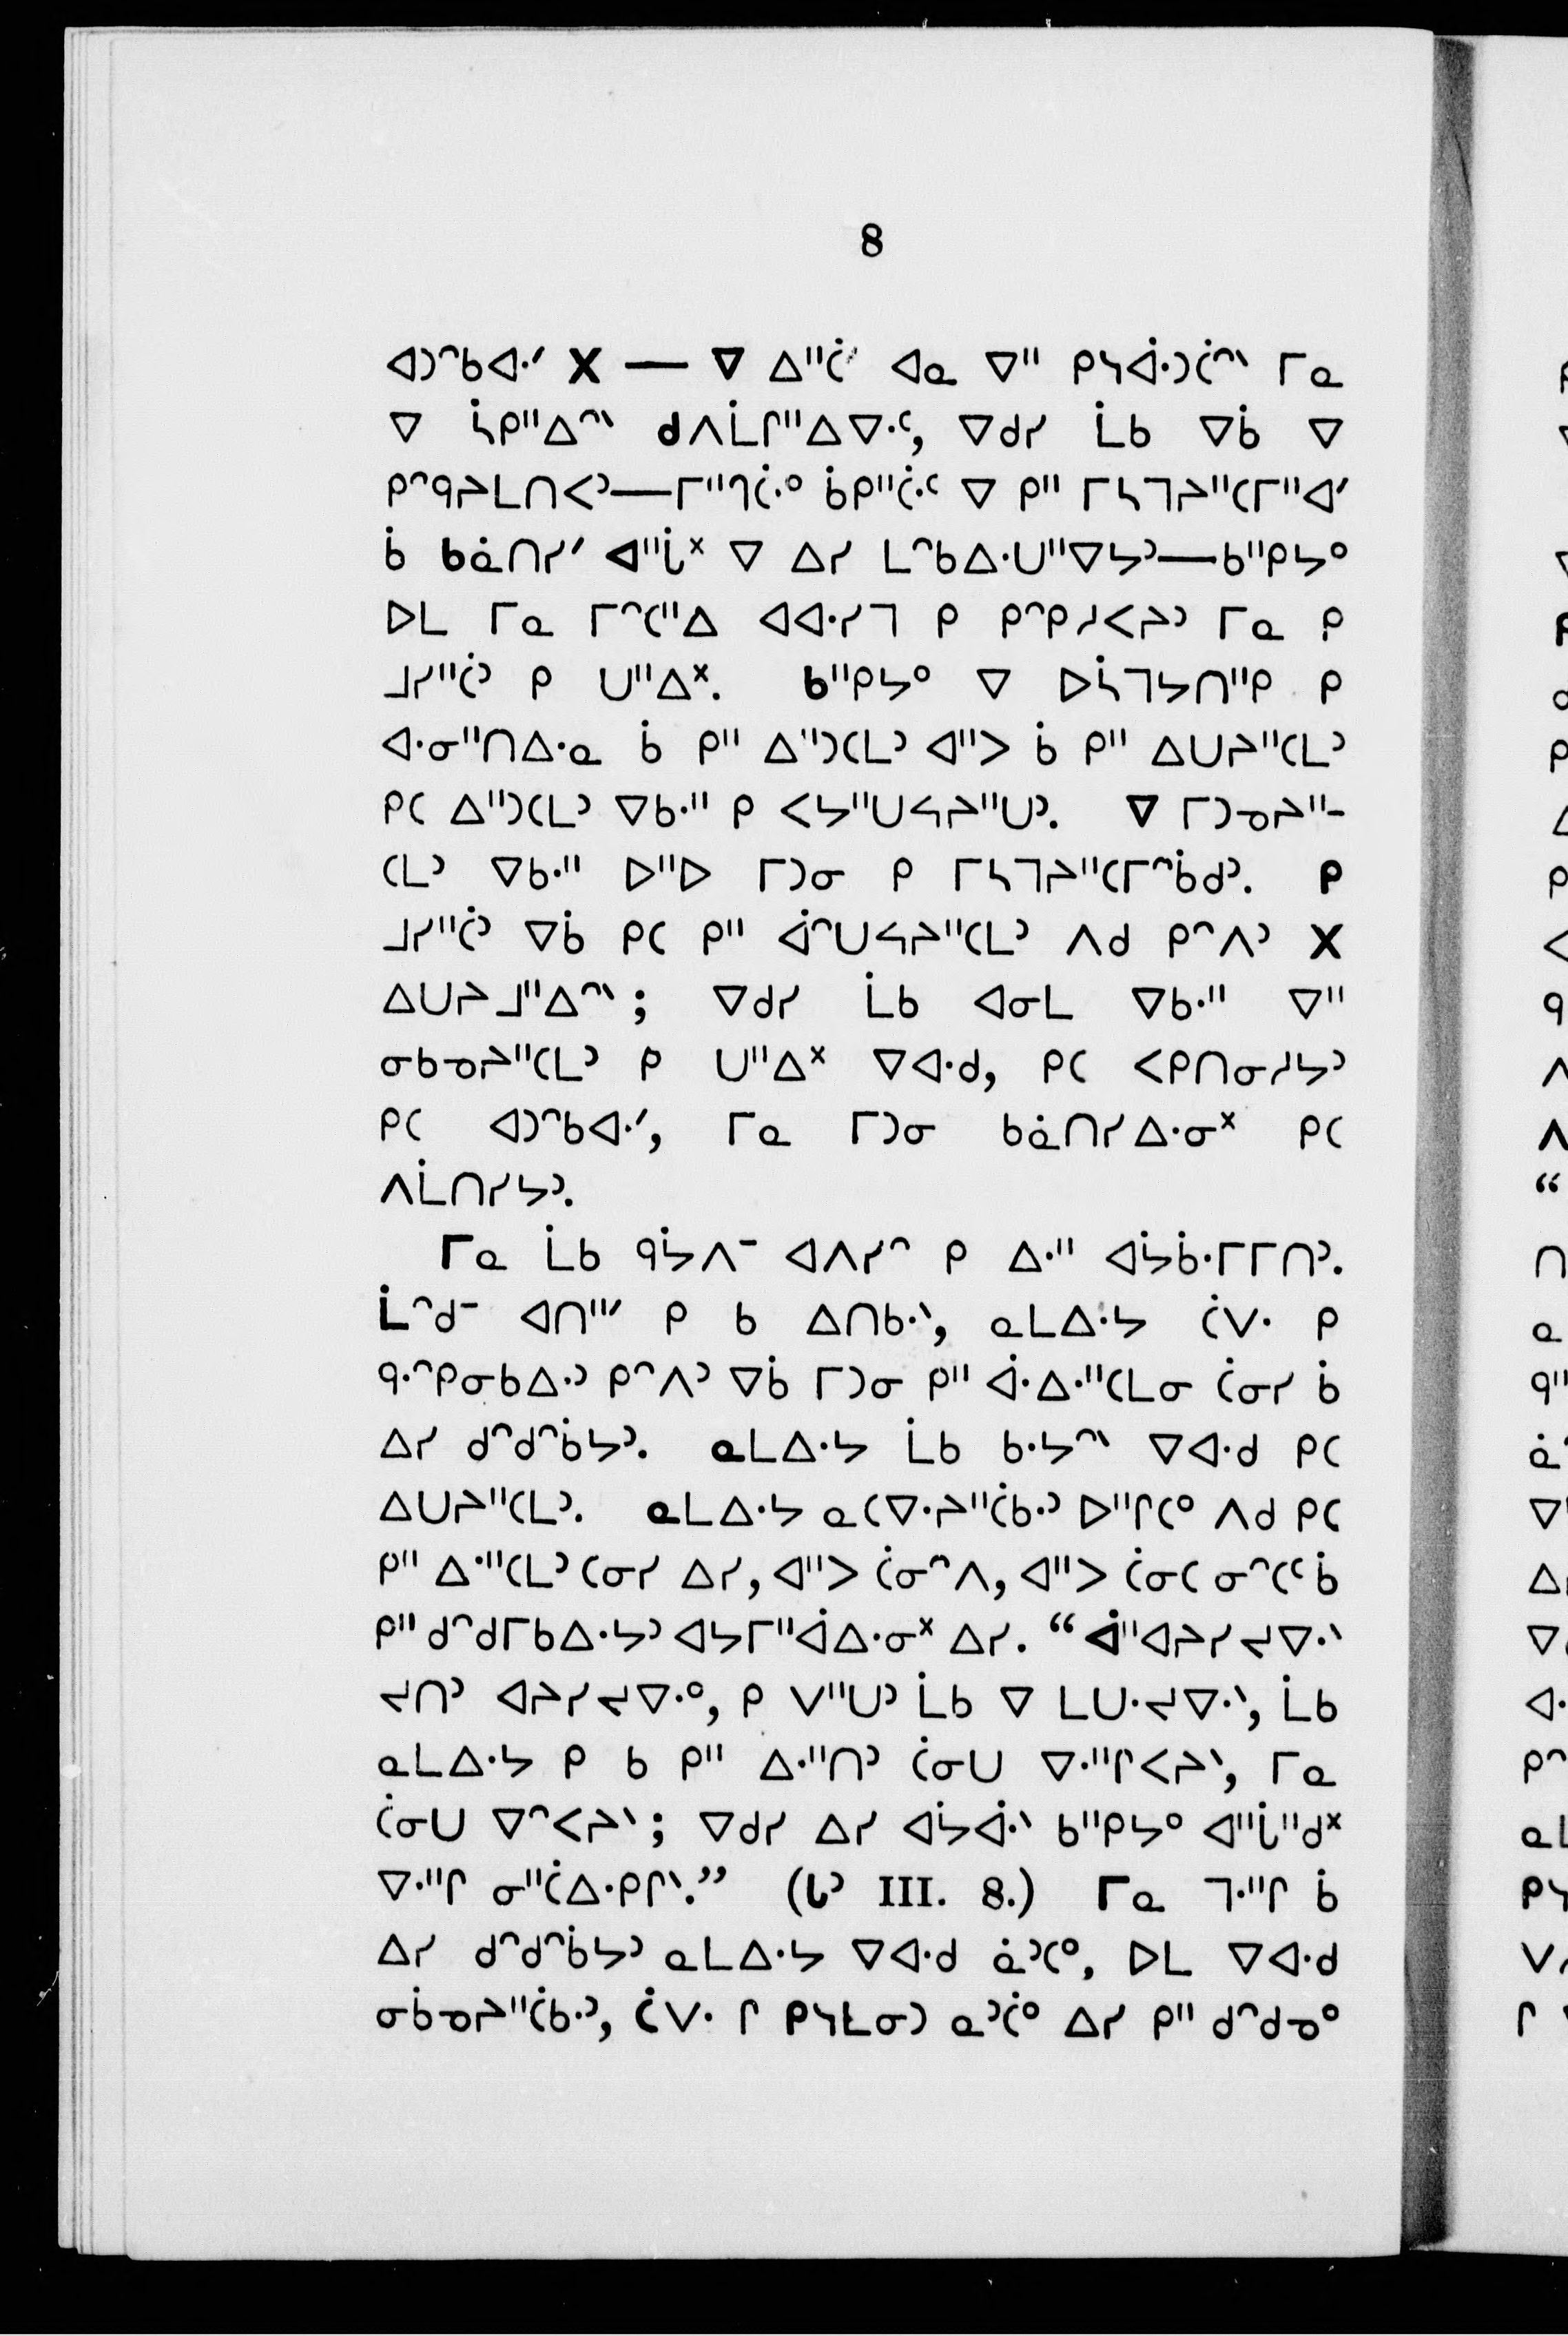 8
ᐊᑐᐢᑲᐊᐧᐟ X — ᐁ ᐃᐦᑖᐟ ᐊᓇ ᐁᐦ ᑭᓴᐋᐧᑐᑖᐢᐠ ᒥᓇ
ᐁ ᓵᑭᐦᐃᐢᐠ ᑯᐱᒫᒋᐦᐃᐁᐧᑦ, ᐁᑯᓯ ᒫᑲ ᐁᑳ ᐁ
ᑭᐢᑫᔨᒪᑎᐸᐣ—ᒥᐦᒉᑖᐧᐤ ᑳᑭᐦᑖᐧᑦ ᐁ ᑭᐦ ᒥᓴᒣᔨᐦᑕᒥᐦᐊᐟ
ᑳ ᑲᓈᑎᓯᐟ ᐊᐦᒑᕽ ᐁ ᐃᓯ ᒪᐢᑲᐃᐧᑌᐦᐁᔭᐣ—ᑲᐦᑭᔭᐤ
ᐅᒪ ᒥᓇ ᒥᐢᑕᐦᐃ ᐊᐊᐧᓯᒣ ᑭ ᑭᐢᑭᓱᐸᔨᐣ ᒥᓇ ᑭ
ᒧᓯᐦᑖᐣ ᑭ ᑌᐦᐃᕽ. ᑲᐦᑭᔭᐤ ᐁ ᐅᓵᒣᔭᑎᐦᑭ ᑭ
ᐊᐧᓂᐦᑎᐃᐧᓇ ᑳ ᑭᐦ ᐃᐦᑐᑕᒪᐣ ᐊᐦᐳ ᑳ ᑭᐦ ᐃᑌᔨᐦᑕᒪᐣ
ᑭᑕ ᐃᐦᑐᑕᒪᐣ ᐁᑲᐧᐦ ᑭ ᐸᔭᐦᑌᓭᔨᐦᑌᐣ. ᐁ ᒥᑐᓀᔨᐦ-
ᑕᒪᐣ ᐁᑲᐧᐦ ᐅᐦᐅ ᒥᑐᓂ ᑭ ᒥᓴᒣᔨᐦᑕᒥᐢᑳᑯᐣ. ᑭ
ᒧᓯᐦᑖᐣ ᐁᑳ ᑭᑕ ᑭᐦ ᐋᐢᑌᓭᔨᐦᑕᒪᐣ ᐱᑯ ᑭᐢᐱᐣ X
ᐃᑌᔨᒧᐦᐃᐢᐠ; ᐁᑯᓯ ᒫᑲ ᐊᓂᒪ ᐁᑲᐧᐦ ᐁᐦ
ᓂᑲᓀᔨᐦᑕᒪᐣ ᑭ ᑌᐦᐃᕽ ᐁᐊᐧᑯ, ᑭᑕ ᐸᑭᑎᓂᓱᔭᐣ
ᑭᑕ ᐊᑐᐢᑲᐊᐧᐟ, ᒥᓇ ᒥᑐᓂ ᑲᓈᑎᓯᐃᐧᓂᕽ ᑭᑕ
ᐱᒫᑎᓯᔭᐣ.
ᒥᓇ ᒫᑲ ᕿᔮᐱᐨ ᐊᐱᓯᐢ ᑭ ᐃᐧᐦ ᐊᔮᑳᐧᒥᒥᑎᐣ.
ᒫᐢᑯᐨ ᐊᑎᐦᐟ ᑭ ᑲ ᐃᑎᑲᐧᐠ, ᓇᒪᐃᐧᔭ ᑖᐯᐧ ᑭ
ᑫᐧᐢᑭᓂᑲᐃᐧᐣ ᑭᐢᐱᐣ ᐁᑳ ᒥᑐᓂ ᑭᐦ ᐋᐧᐃᐧᐦᑕᒪᓂ ᑖᓂᓯ ᑳ
ᐃᓯ ᑯᐢᑯᐢᑳᔭᐣ. ᓇᒪᐃᐧᔭ ᒫᑲ ᑲᐧᔭᐢᐠ ᐁᐊᐧᑯ ᑭᑕ
ᐃᑌᔨᐦᑕᒪᐣ. ᓇᒪᐃᐧᔭ ᓇᑕᐁᐧᔨᐦᑖᑲᐧᐣ ᐅᐦᒋᑕᐤ ᐱᑯ ᑭᑕ
ᑭᐦ ᐃᐧᐦᑕᒪᐣ ᑕᓂᓯ ᐃᓯ, ᐊᐦᐳ ᑖᓂᐢᐱ, ᐊᐦᐳ ᑖᓂᑕ ᓂᐢᑕᑦ ᑳ
ᑭᐦ ᑯᐢᑯᒥᑲᐃᐧᔭᐣ ᐊᔭᒥᐦᐋᐃᐧᓂᕽ ᐃᓯ. “ᐋᐦᐊᔨᓯᔪᐁᐧᐠ
ᔪᑎᐣ ᐊᔨᓯᔪᐁᐧᐤ, ᑭ ᐯᐦᑌᐣ ᒫᑲ ᐁ ᒪᑌᐧᔪᐁᐧᐠ, ᒫᑲ
ᓇᒪᐃᐧᔭ ᑭ ᑲ ᑭᐦ ᐃᐧᐦᑎᐣ ᑖᓂᑌ ᐁᐧᐦᒋᐸᔨᐠ, ᒥᓇ
ᑖᓂᑌ ᐁᐢᐸᔨᐠ; ᐁᑯᓯ ᐃᓯ ᐊᔮᐋᐧᐠ ᑲᐦᑭᔭᐤ ᐊᐦᒑᐦᑯᕽ
ᐁᐧᐦᒋ ᓂᐦᑖᐃᐧᑭᒋᐠ.” (ᒐᐣ III. 8.) ᒥᓇ ᒣᐧᐦᒋ ᑳ
ᐃᓯ ᑯᐢᑯᐢᑳᔭᐣ ᓇᒪᐃᐧᔭ ᐁᐊᐧᑯ ᓈᐣᑕᐤ, ᐅᒪ ᐁᐊᐧᑯ
ᓂᑳᓀᔨᐦᑖᑲᐧᐣ, ᑖᐯᐧ ᒋ ᑭᓴᒪᓂᑐ ᓇᐣᑖᐤ ᐃᓯ ᑭᐦ ᑯᐢᑯᓀᐤ